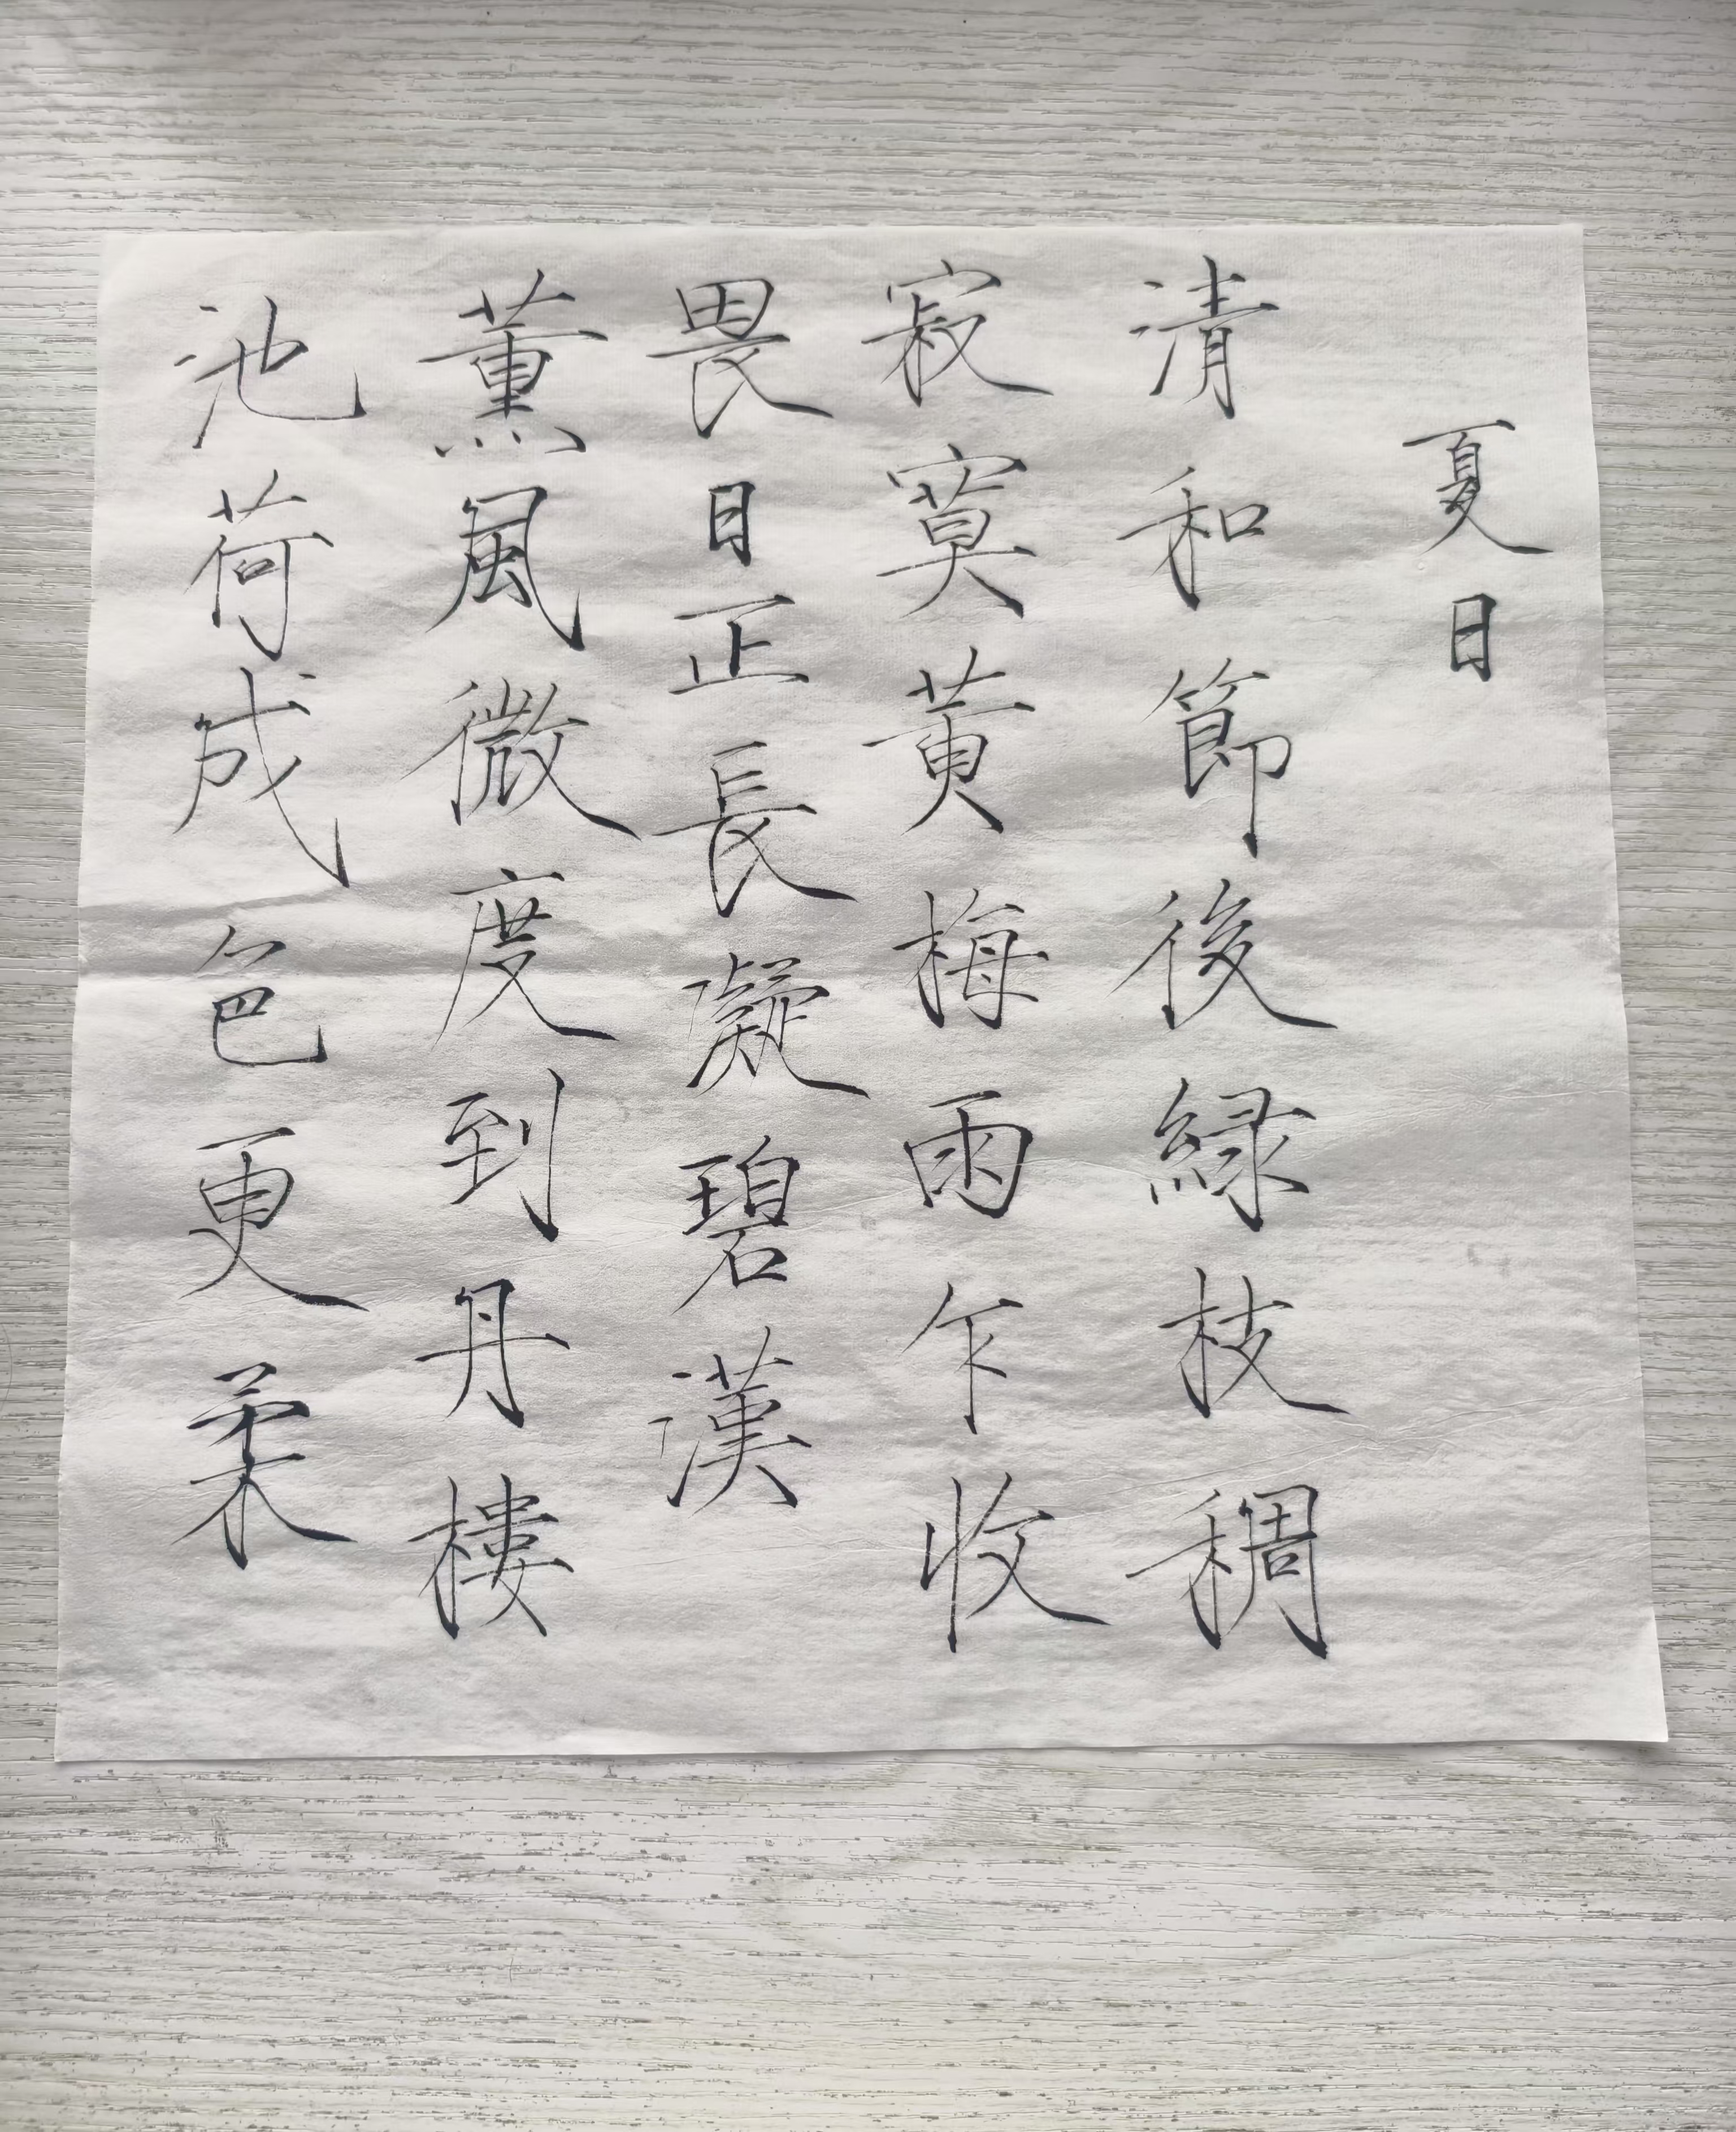 夏日
清和節後緑枝稠
寂寞黄梅雨乍收
畏日正長凝碧漢
薰風微度到丹樓
池荷成色更柔